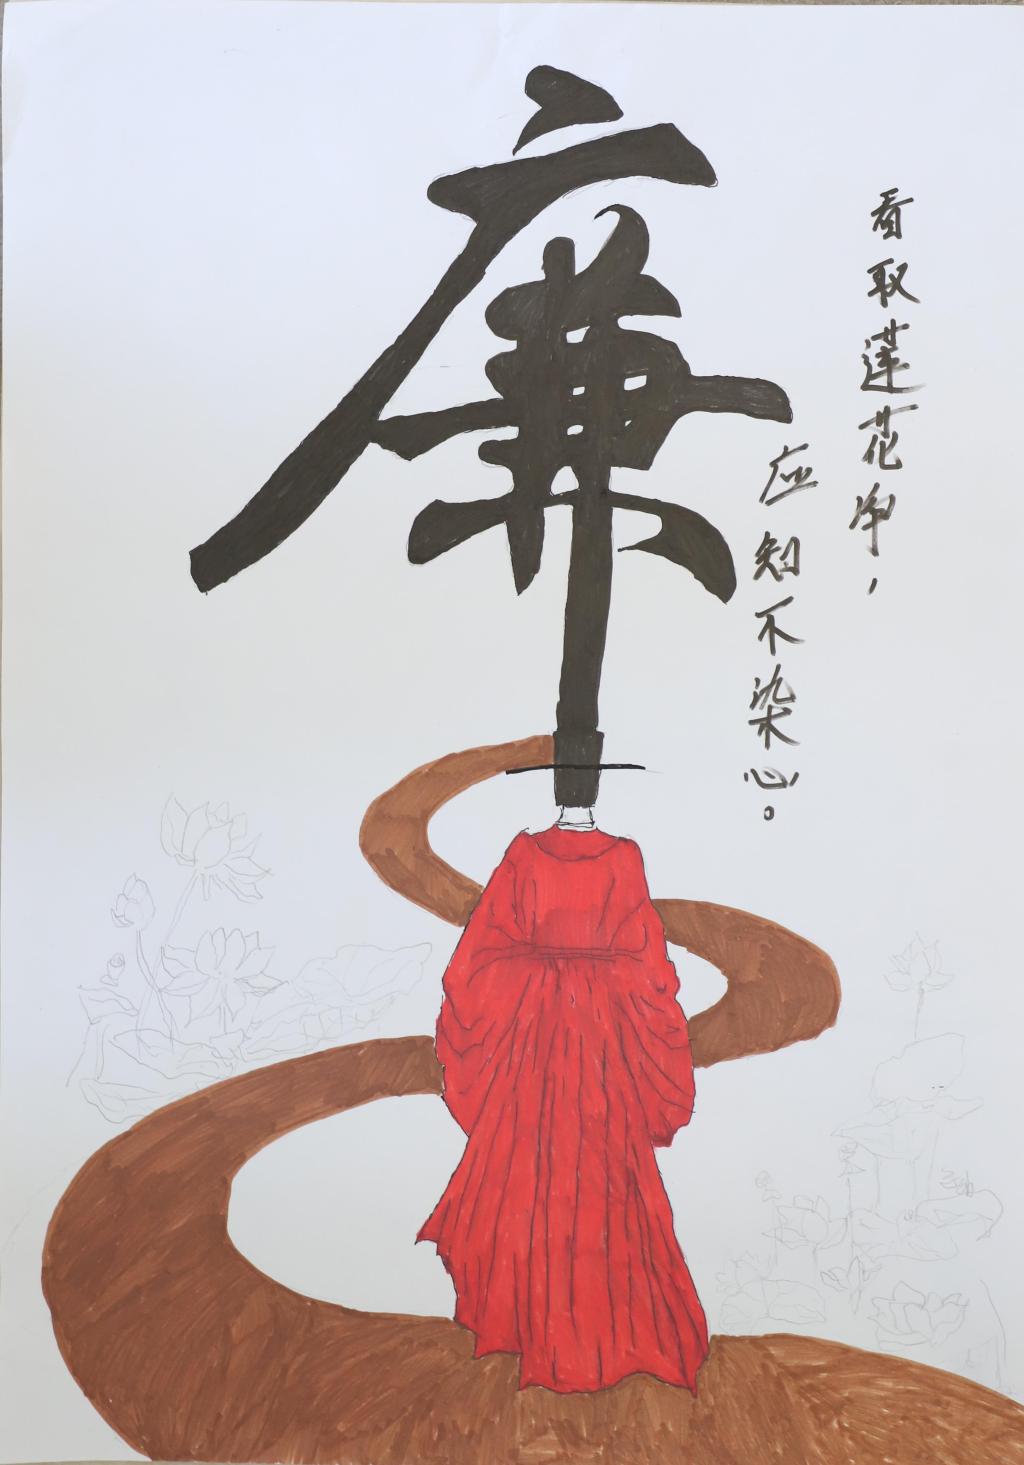 廉
看取莲花净，
应知不染心。